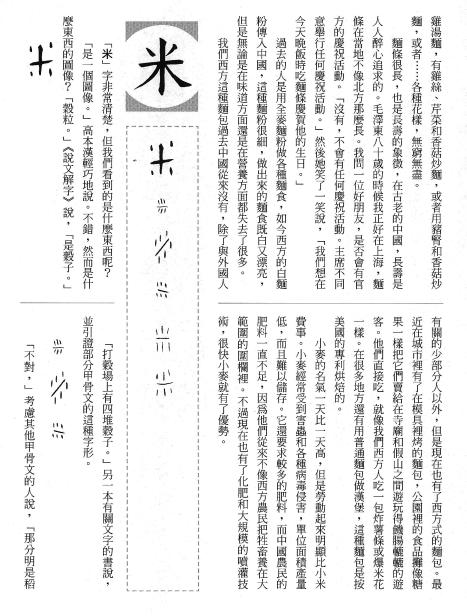 雞湯麵，有雞絲、芹菜和香菇炒麵，或者用豬腎和香菇炒
麵，或者……各種花樣，無窮無盡。
麵條很長，也是長壽的象徵，在古老的中國，長壽是
人人醉心追求的。毛澤東八十歲的時候我正好在上海，麵
條在當地不像北方那麼長。我問一位好朋友，是否會有官
方的慶祝活動。「沒有，不會有任何慶祝活動。主席不同
意舉行任何慶祝活動。」然後她笑了一笑說，「我們想在
今天晚飯時吃麵條慶賀他的生日。」
過去的人是用全麥麵粉做各種麵食，如今西方的白麵
粉傳入中國，這種麵粉很細，做出來的麵食既白又漂亮，
但是無論是在味道方面還是在營養方面都失去了很多。
我們西方這種麵包過去中國從來沒有，除了與外國人
有關的少部分人以外，但是現在也有了西方式的麵包。最
近在城市裡有了在模具裡烤的麵包，公園裡的食品攤像糖
果一樣把它們賣給在寺廟和假山之間遊玩得饑腸轆轆的遊
客。他們直接吃，就像我們西方人吃一包炸薯條或爆米花
一樣。在很多地方還有用普通麵包做漢堡，這種麵包是按
美國的專利烘焙的。
小麥的名氣一天比一天高，但是勞動起來明顯比小米
費事。小麥經常受到害蟲和各種病毒侵害，單位面積產量
低，而且難以儲存。它還要求較多的肥料，而中國農民的
肥料一直不足，因為他們從來不像西方農民把牲畜養在大
範圍的圍欄裡。不過現在也有了化肥和大規模的噴灌技
術，很快小麥就有了優勢。
米
「米」字非常清楚，但我們看到的是什麼東西呢？
「是一個圖像。」高本漢輕巧地說。不錯，然而是什
麼東西的圖像？「穀粒。」《說文解字》說，「是穀子。」
「打穀場上有四堆穀子。」另一本有關文字的書說，
並引證部分甲骨文的這種字形。
「不對，」考慮其他甲骨文的人說，「那分明是稻